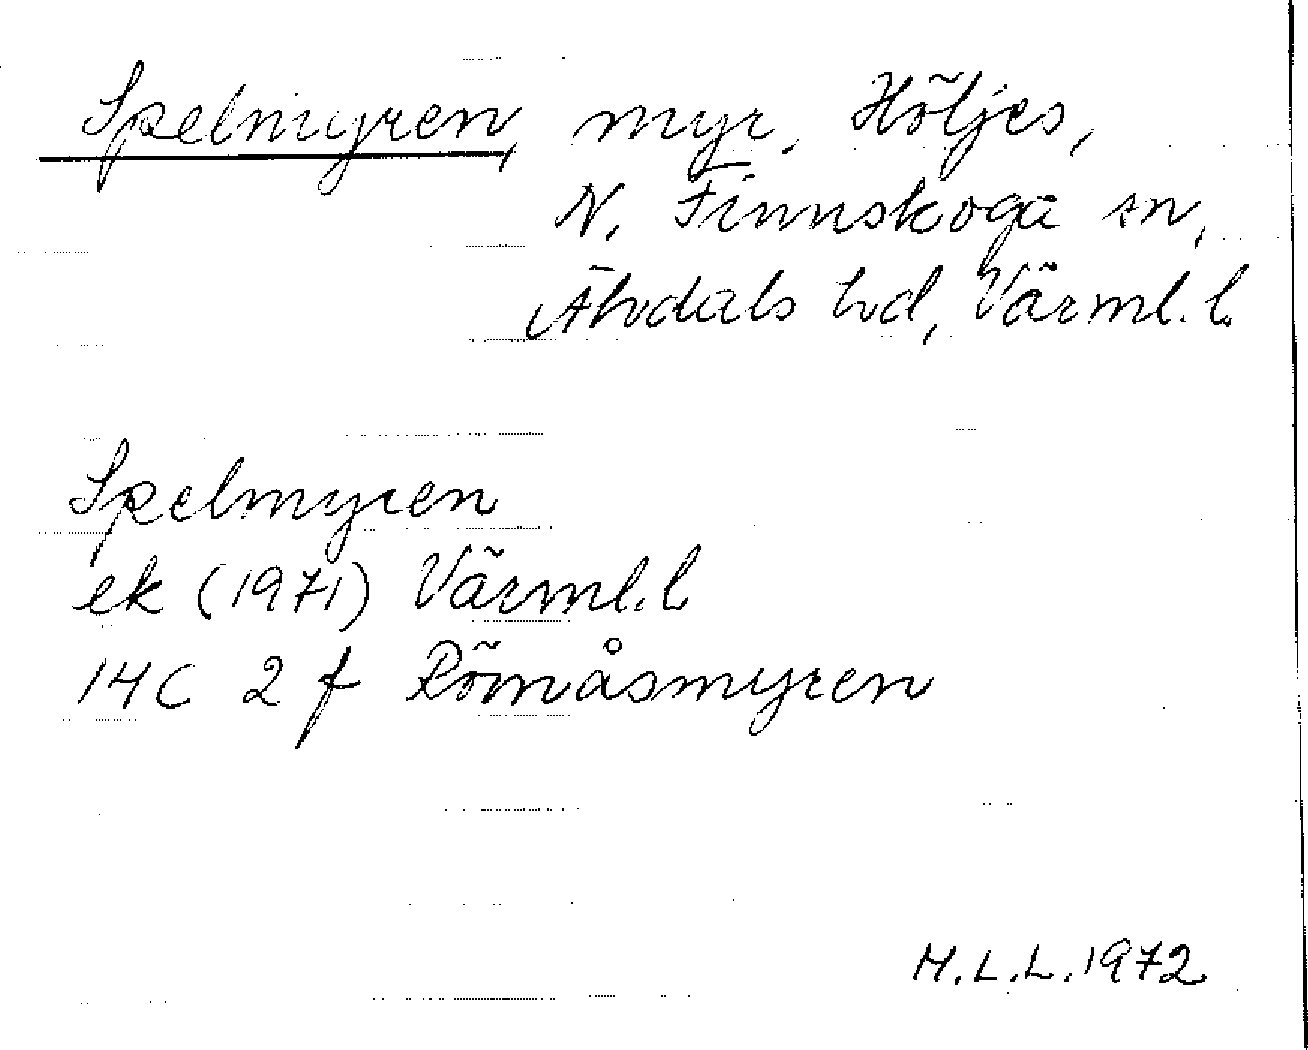 Spelmyren, myr, Höljes,
N. Finnskoga sn,
Älvdals hd, Värml. l.
Spelmyren
ek (1971) Värml. l
14C 2 f Römåsmyren
M.L.L. 1972